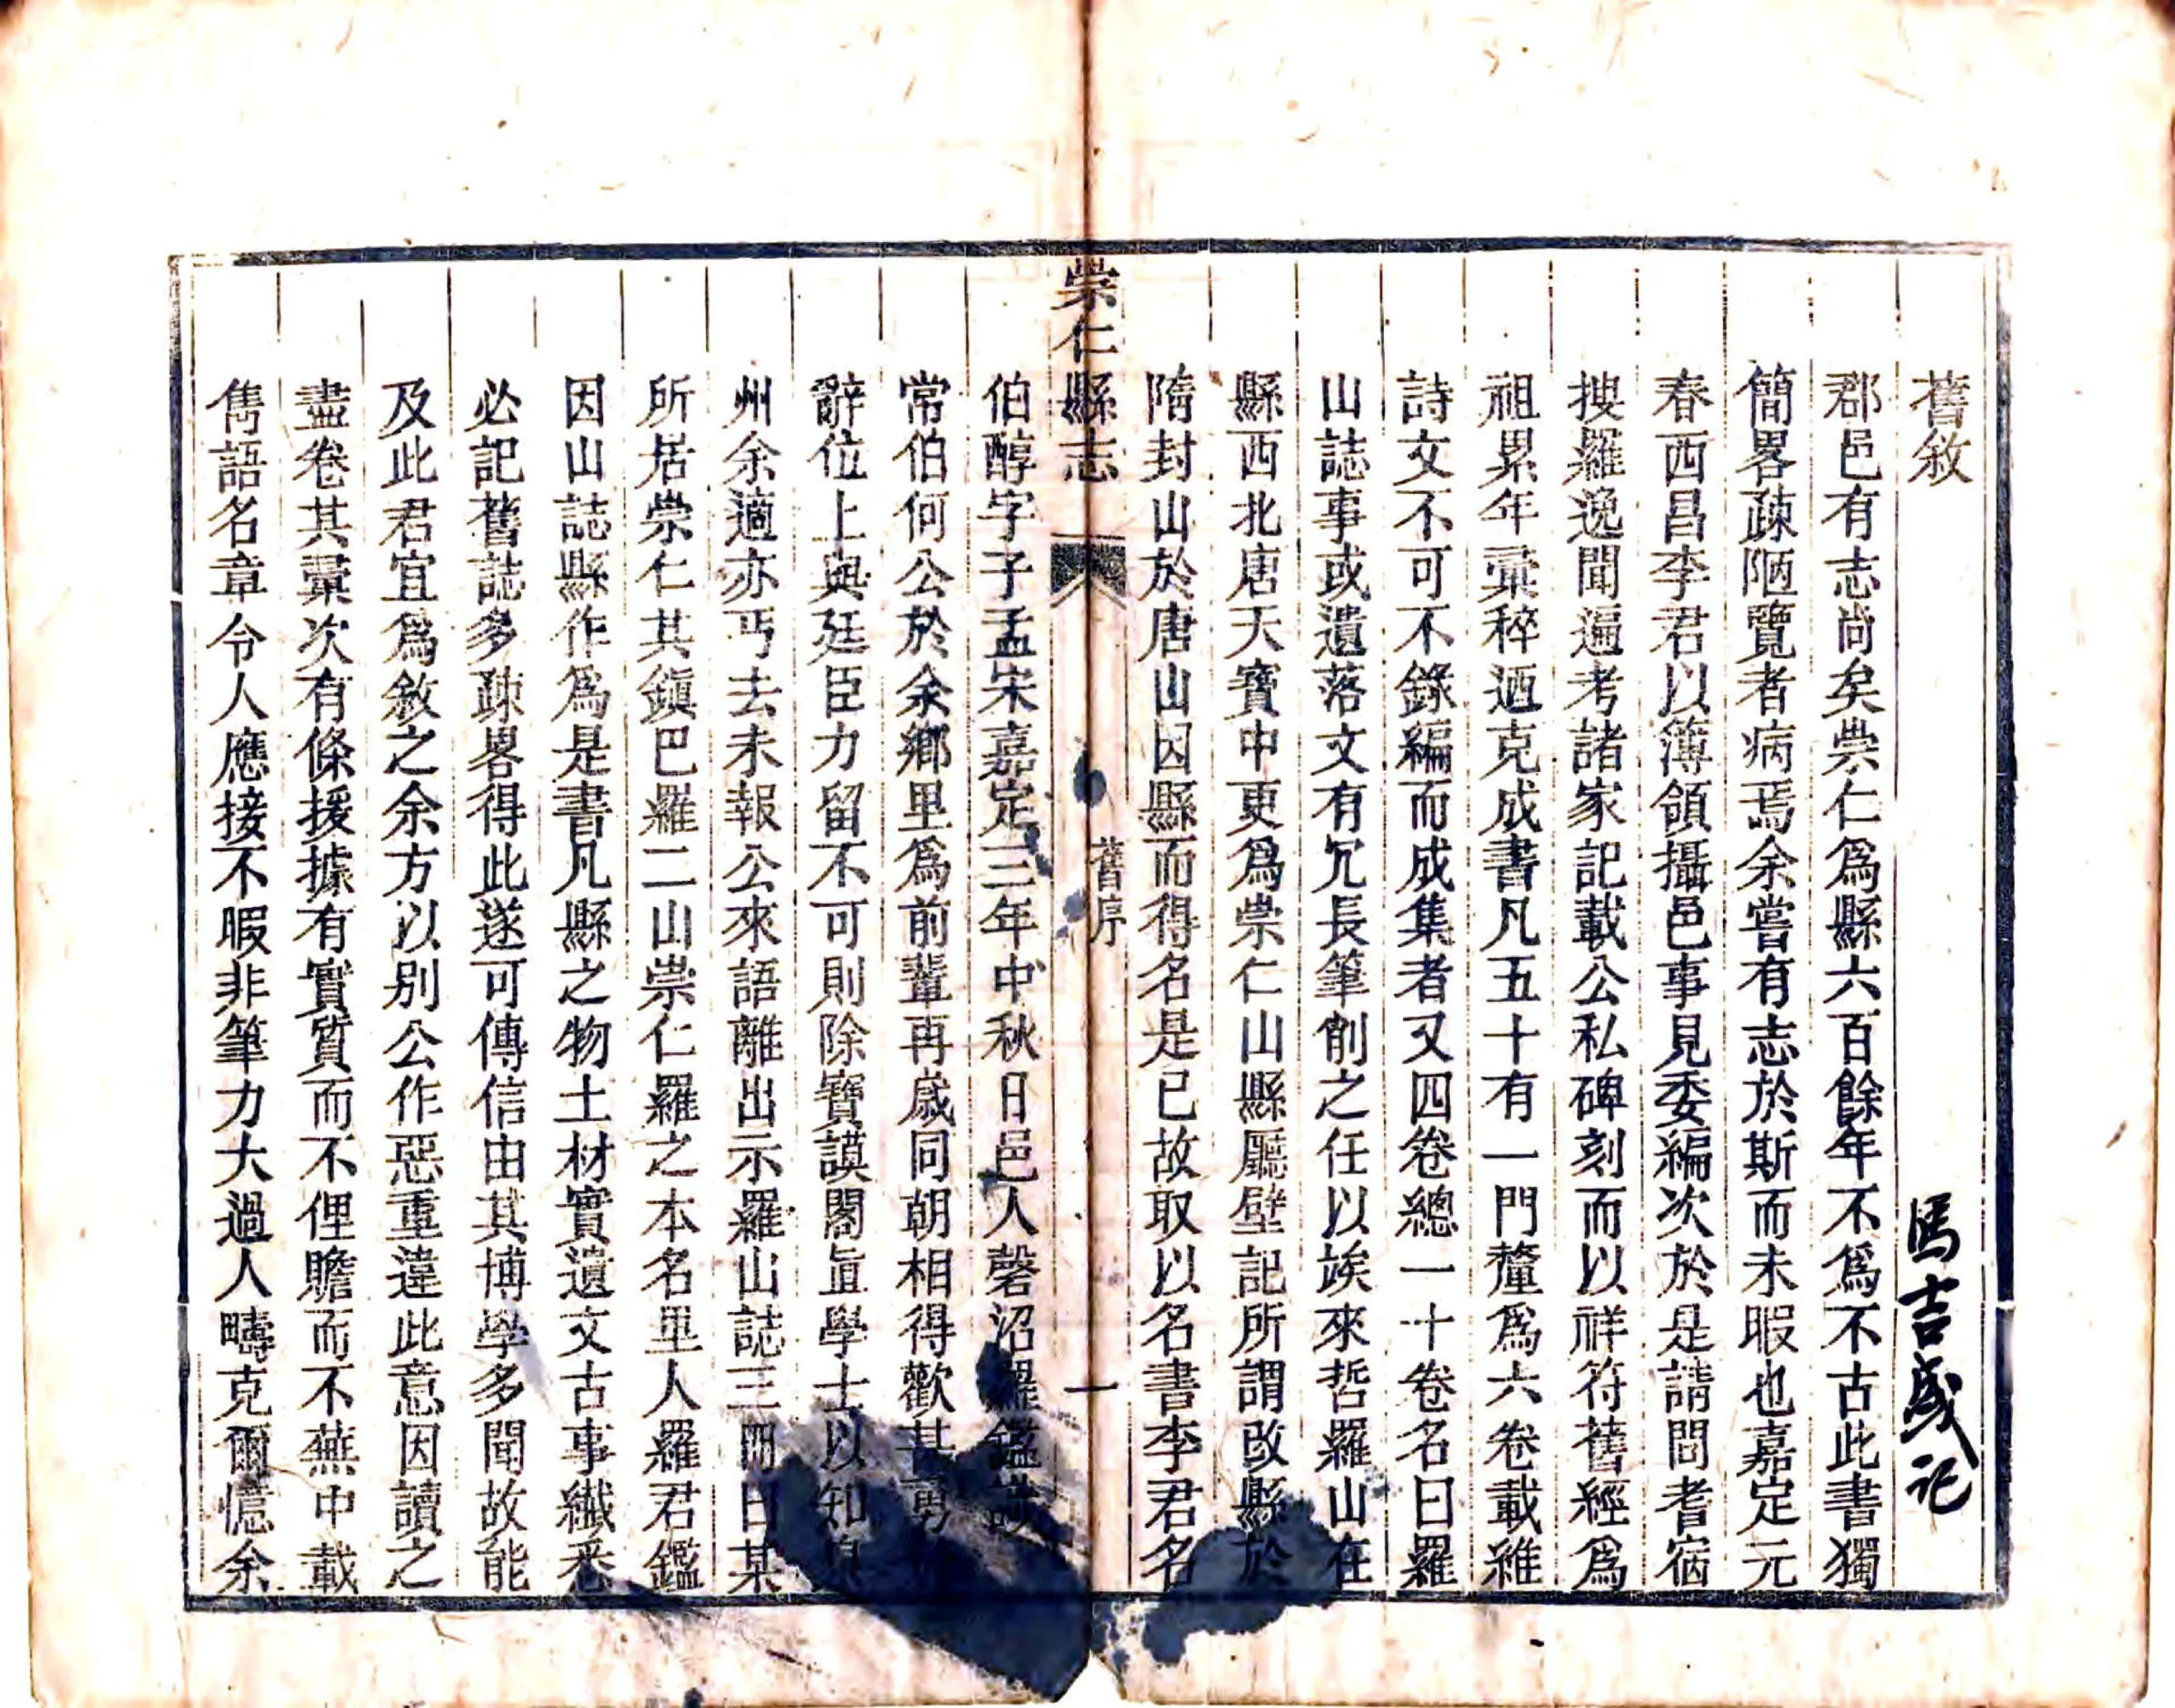 舊敘
馮吉成記
郡邑有志尚矣崇仁爲縣六百餘年不爲不古此書獨
簡畧疎陋覽者病焉余嘗有志於斯而未暇也嘉定元
春西昌李君以簿領攝邑事見委編次於是請問耆宿
搜羅逸聞遍考諸家記載公私碑刻而以祥符舊經爲
祖累年彙稡迺克成書凡五十有一門釐爲六卷載雜
詩文不可不錄編而成集者又四卷總一十卷名曰羅
山誌事或遺落文有冗長筆削之任以竢來哲羅山在
縣西北唐天寶中更爲崇仁山縣廳壁記所謂改縣於
隋封山於唐山因縣而得名是已故取以名書李君名
崇仁縣志
舊序
一
伯醇字子孟宋嘉定三年中秋日邑人磬沼羅鑑
常伯何公於余鄉里爲前輩再歲同朝相得歡甚
辭位上與廷臣力留不可則除寶謨閣直學士以知
州余適亦丐去未報公來語離出示羅山誌三冊曰某
所居崇仁其鎮巴羅二山崇仁羅之本名里人羅君鑑
因山誌縣作爲是書凡縣之物土材實遺文古事纖悉
必記舊誌多疎畧得此遂可傳信由其博學多聞故能
及此君宜爲敘之余方以别公作惡重違此意因讀之
盡卷其彙次有條援據有實質而不俚贍而不蕪中載
雋語名章令人應接不暇非筆力大過人疇克爾憶余